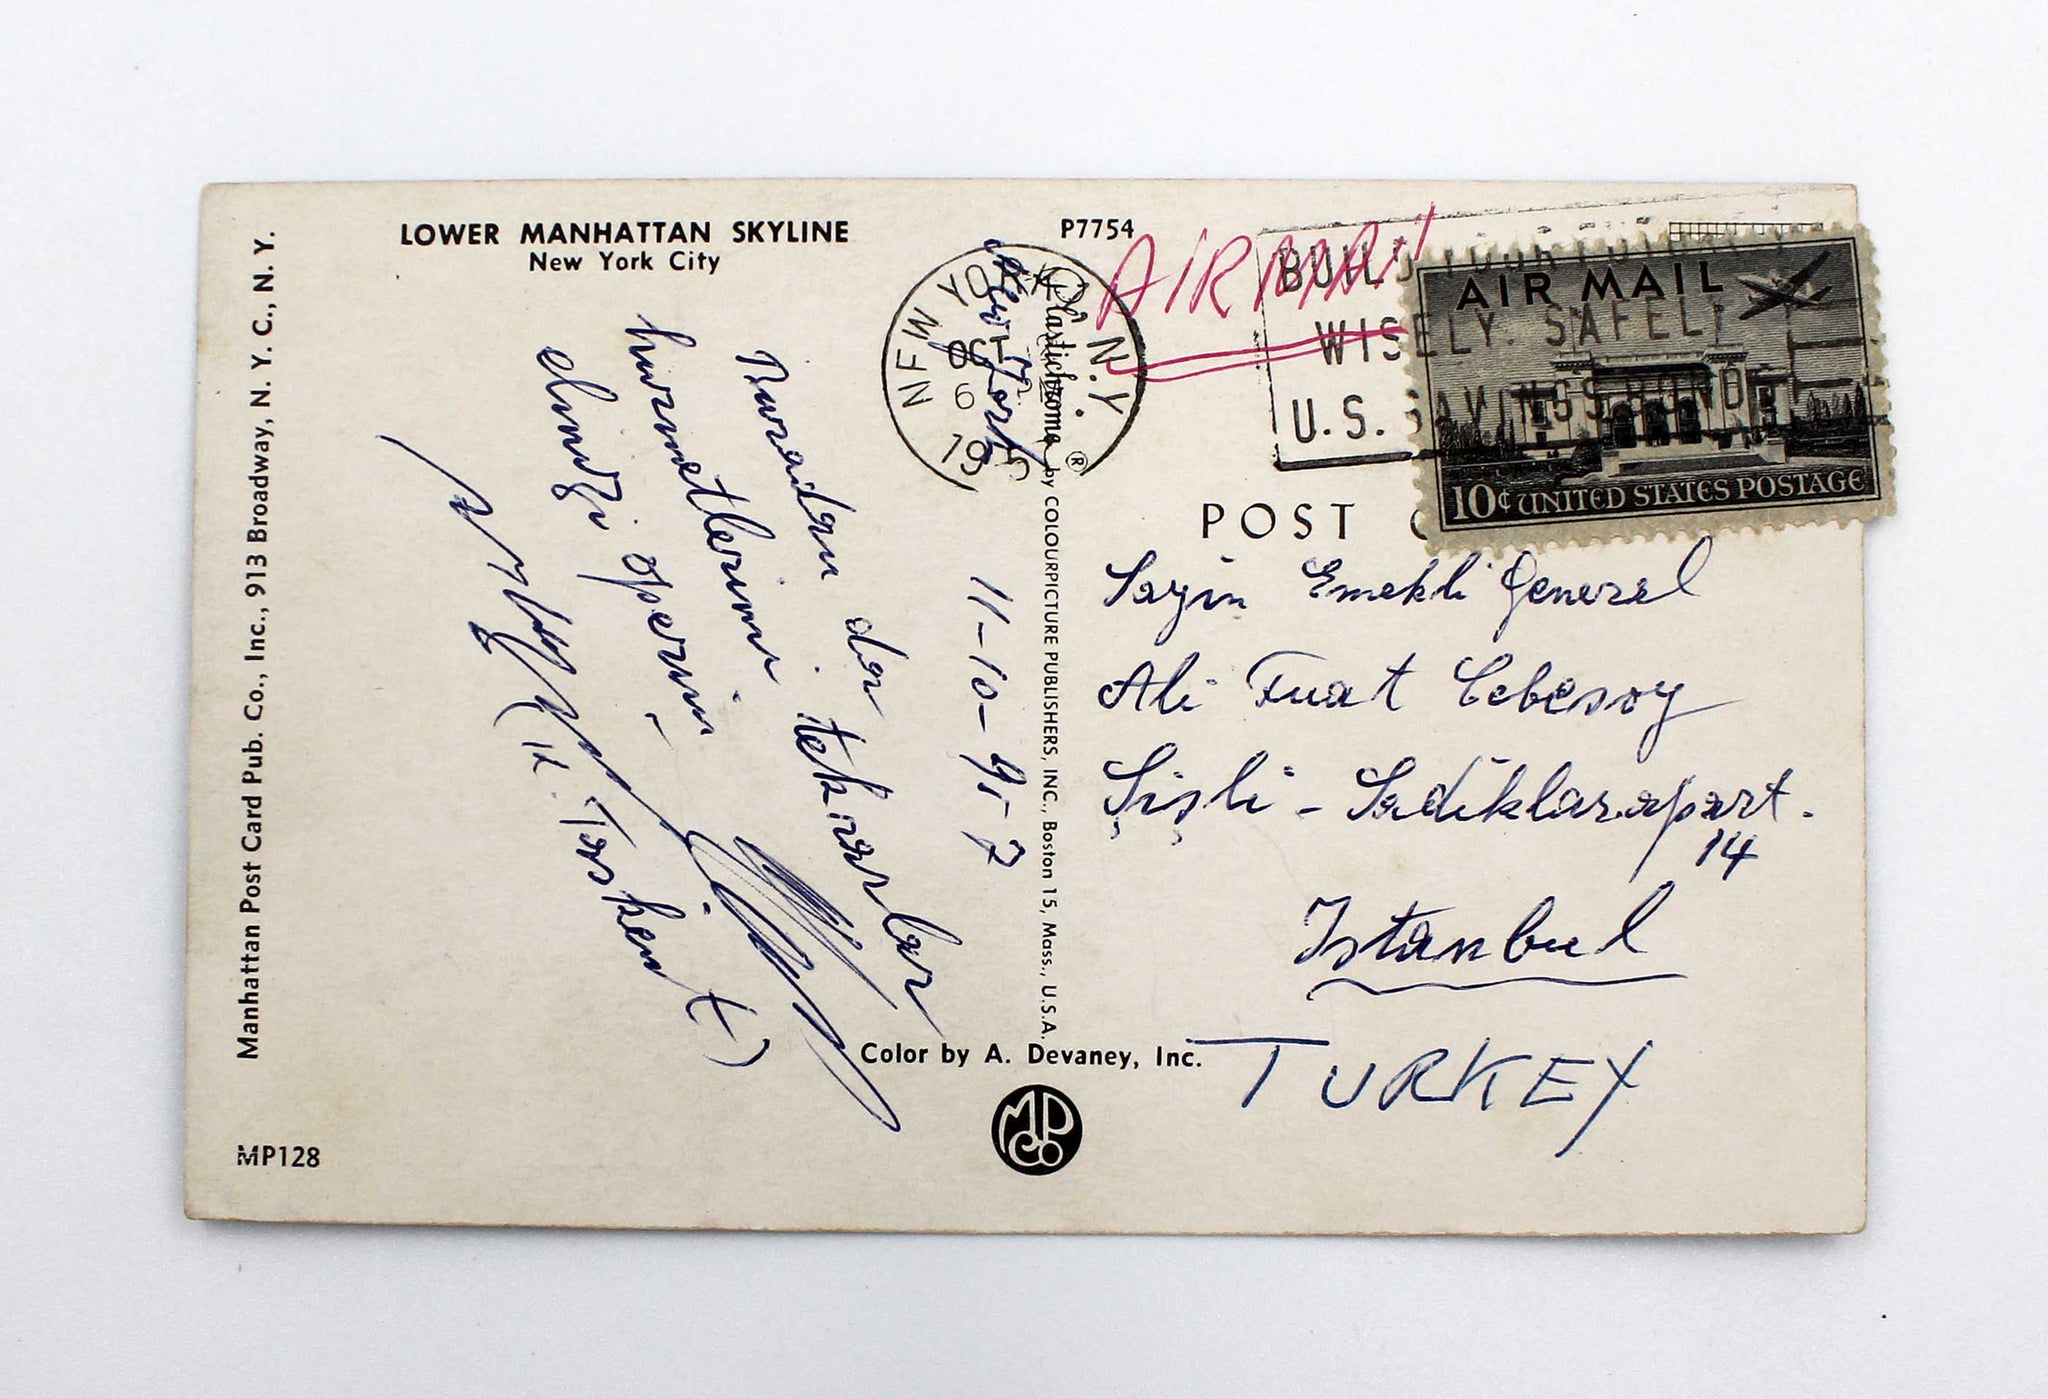 LOWER MANHATTAN SKYLINE
New York City
P7754
Manhattan Post Card Pub. Co., Inc., 913 Broadway, N. Y. C., N. Y.
MP128
New York
11-10-957
Buradan da tekrarlar
hürmetlerimi
elinizi öperim
(H. Taskent)
Plastichrome ® by COLOURPICTURE PUBLISHERS, INC., Boston 15, Mass., U.S.A.
Color by A. Devaney, Inc.
MP Co
NEW YORK N.Y.
OCT
6
19
AIR MAil
BUILD YOUR FUTURE
WISELY. SAFELY
U.S. SAVINGS BONDS
AIR MAIL
10¢ UNITED STATES POSTAGE
POST
Sayin Emekli General
Ali Fuat Cebesoy
Şişli - Sadiklarapart.
14
Istanbul
TURKEY